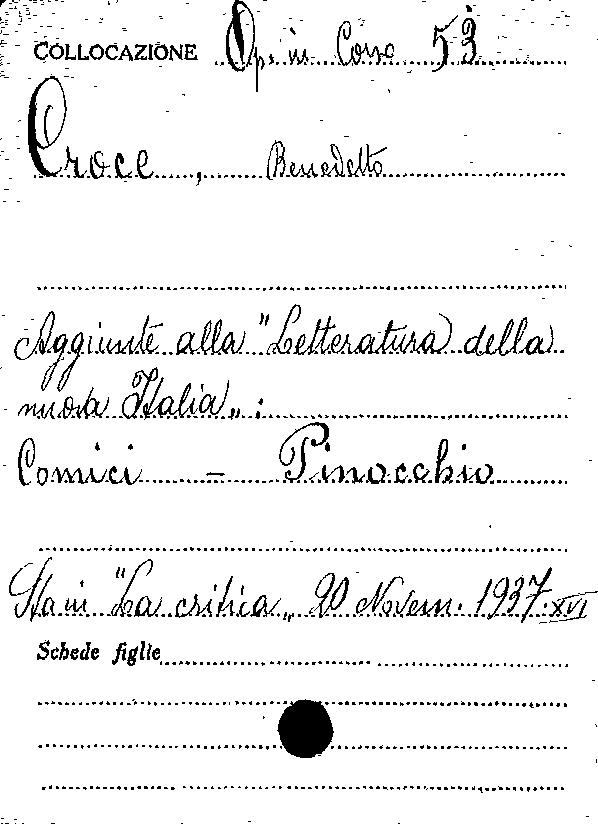 COLLOCAZIONE Op. in Corso 53
Croce, Benedetto
Aggiunte alla "Letteratura della
nuova Italia„:
Comici - Pinocchio
Sta in "La critica„ 20 Novem. 1937. XVI
Schede figlie